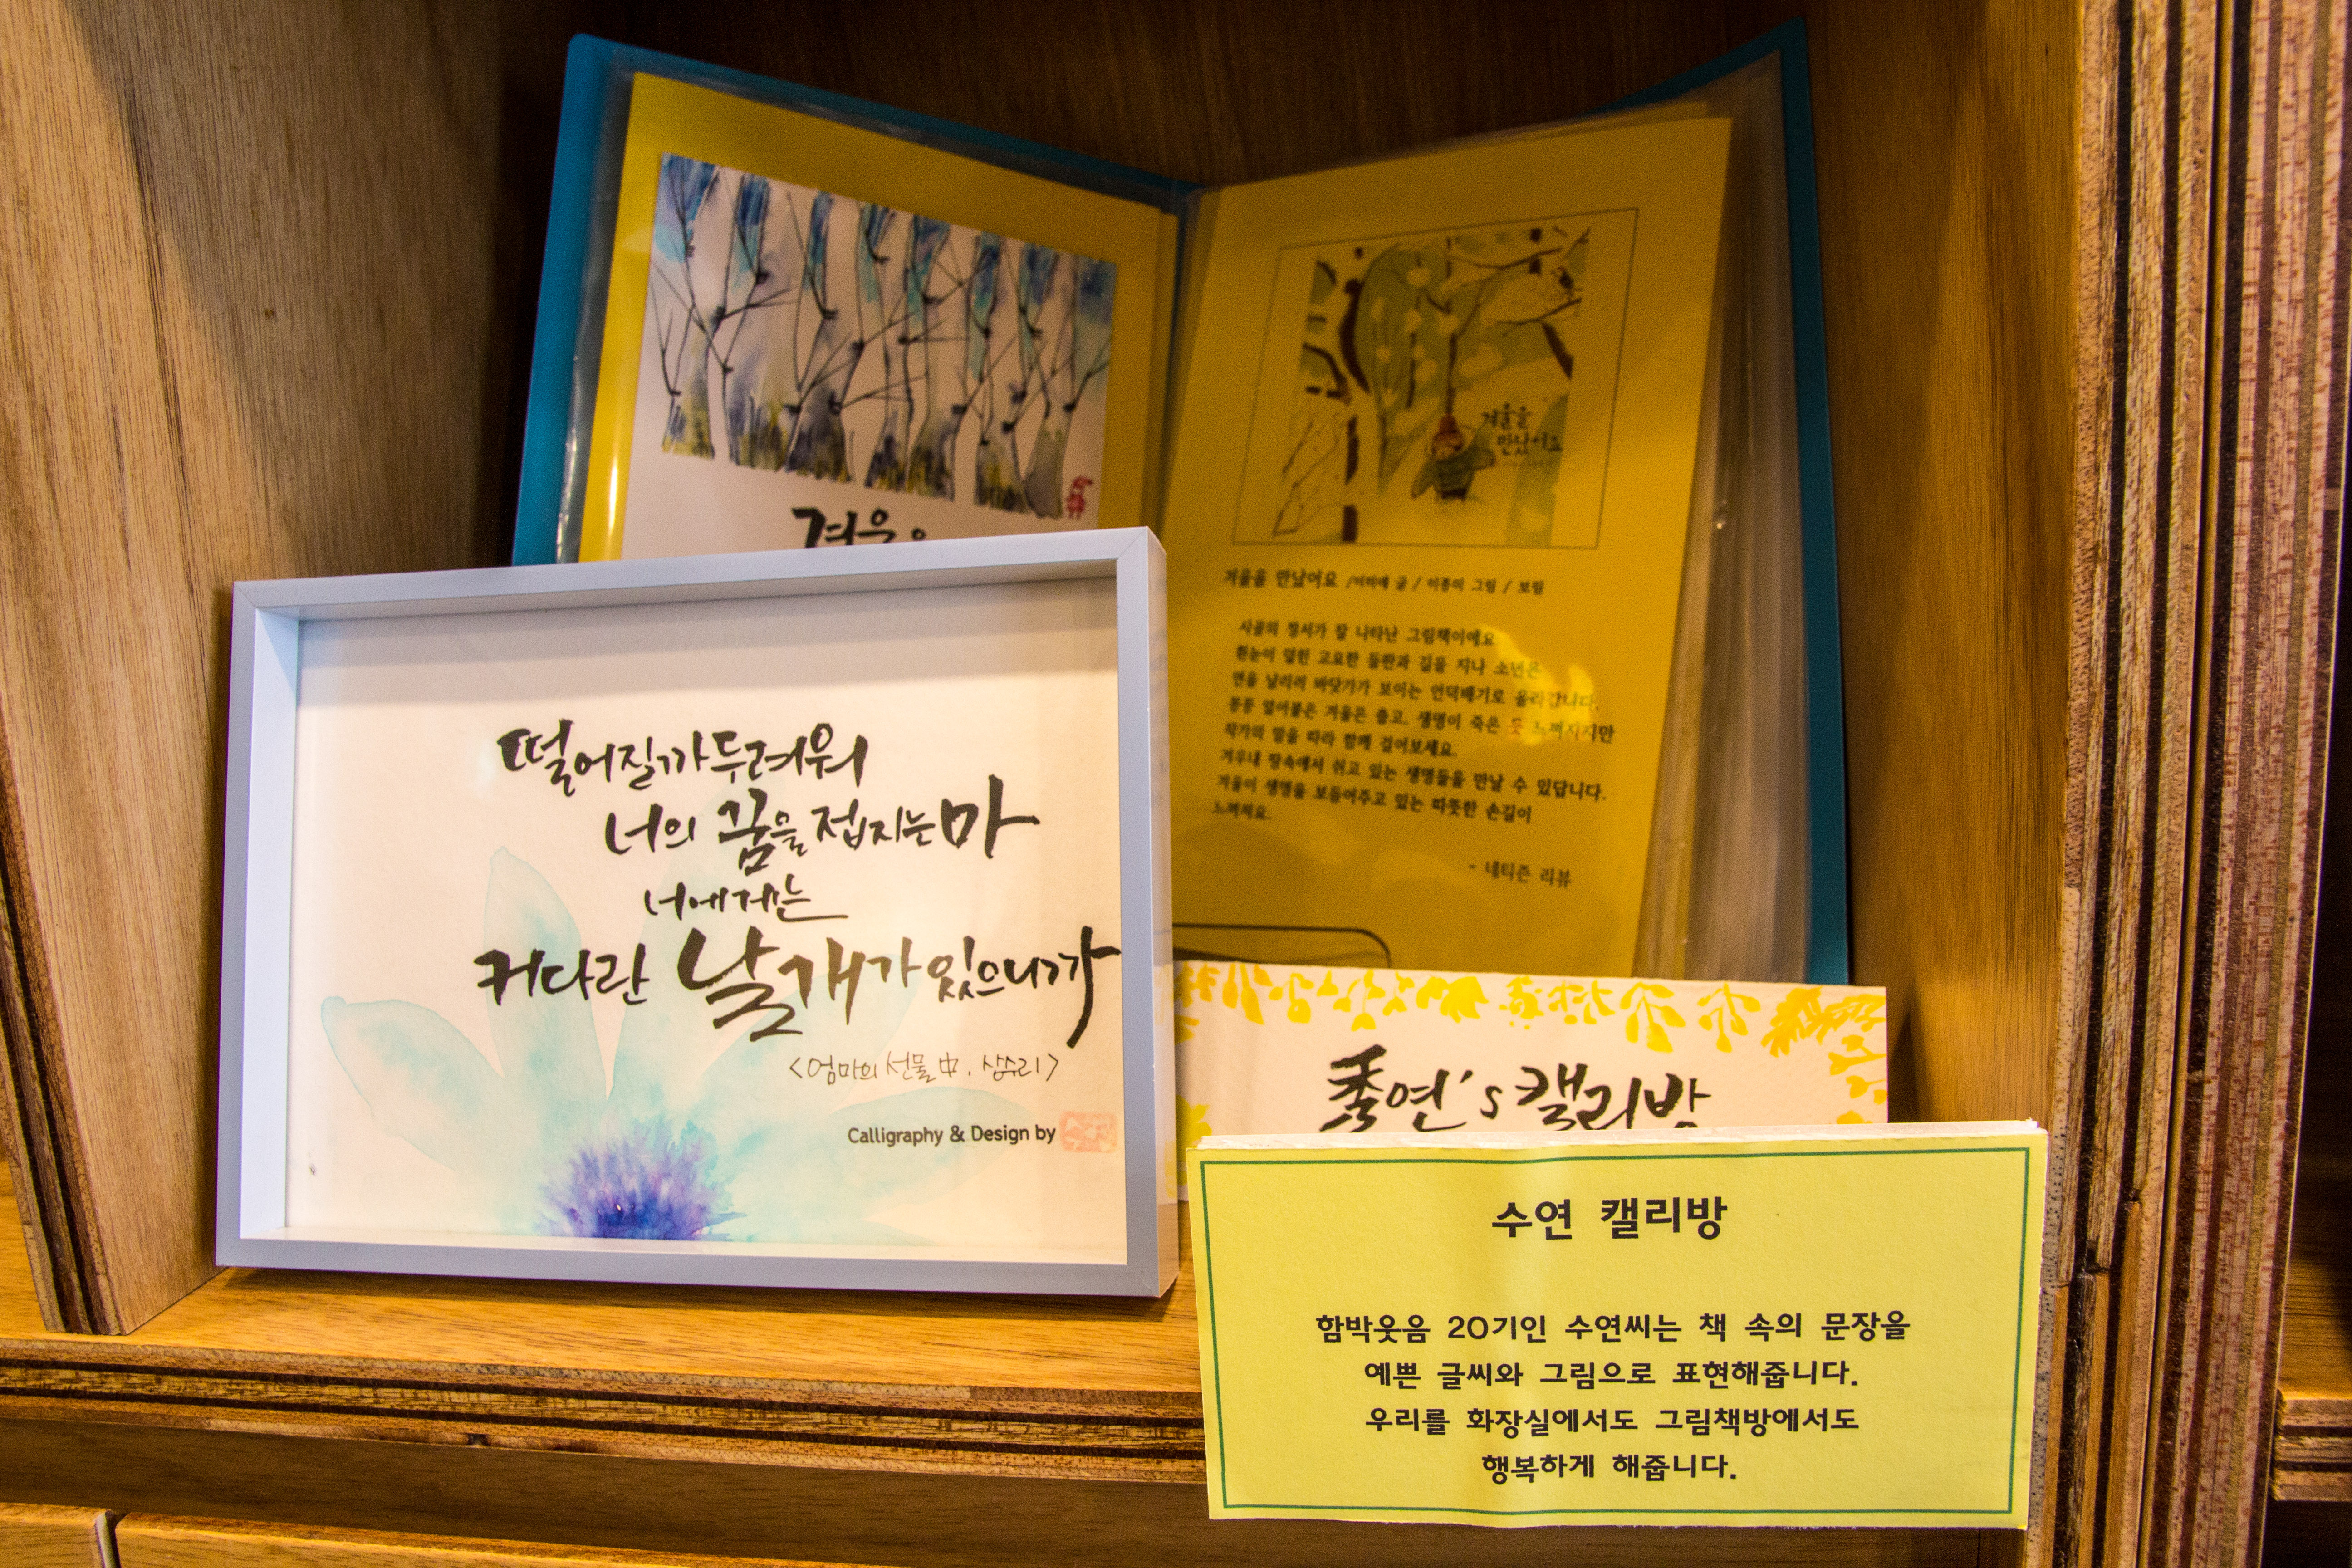 겨울을
겨울을
만났어요
겨울을 만났어요 /이미애 글 / 이종미 그림 / 보림
시골의 정서가 잘 나타난 그림책이예요
흰눈이 덮힌 고요한 들판과 길을 지나 소년은
연을 날리러 바닷가가 보이는 언덕배기로 올라갑니다.
꽁꽁 얼어붙은 겨울은 춥고, 생명이 죽은 듯 느껴지지만
작가의 말을 따라 함께 걸어보세요.
겨우내 땅속에서 쉬고 있는 생명들을 만날 수 있답니다.
겨울이 생명을 보듬어주고 있는 따뜻한 손길이
느껴져요.
- 네티즌 리뷰
떨어질까 두려워
너의 꿈을 접지는 마
너에게는
커다란 날개가 있으니까
<엄마의 선물 中, 상수리>
Calligraphy & Design by
秀연's 캘리방
수연 캘리방
함박웃음 20기인 수연씨는 책 속의 문장을
예쁜 글씨와 그림으로 표현해줍니다.
우리를 화장실에서도 그림책방에서도
행복하게 해줍니다.